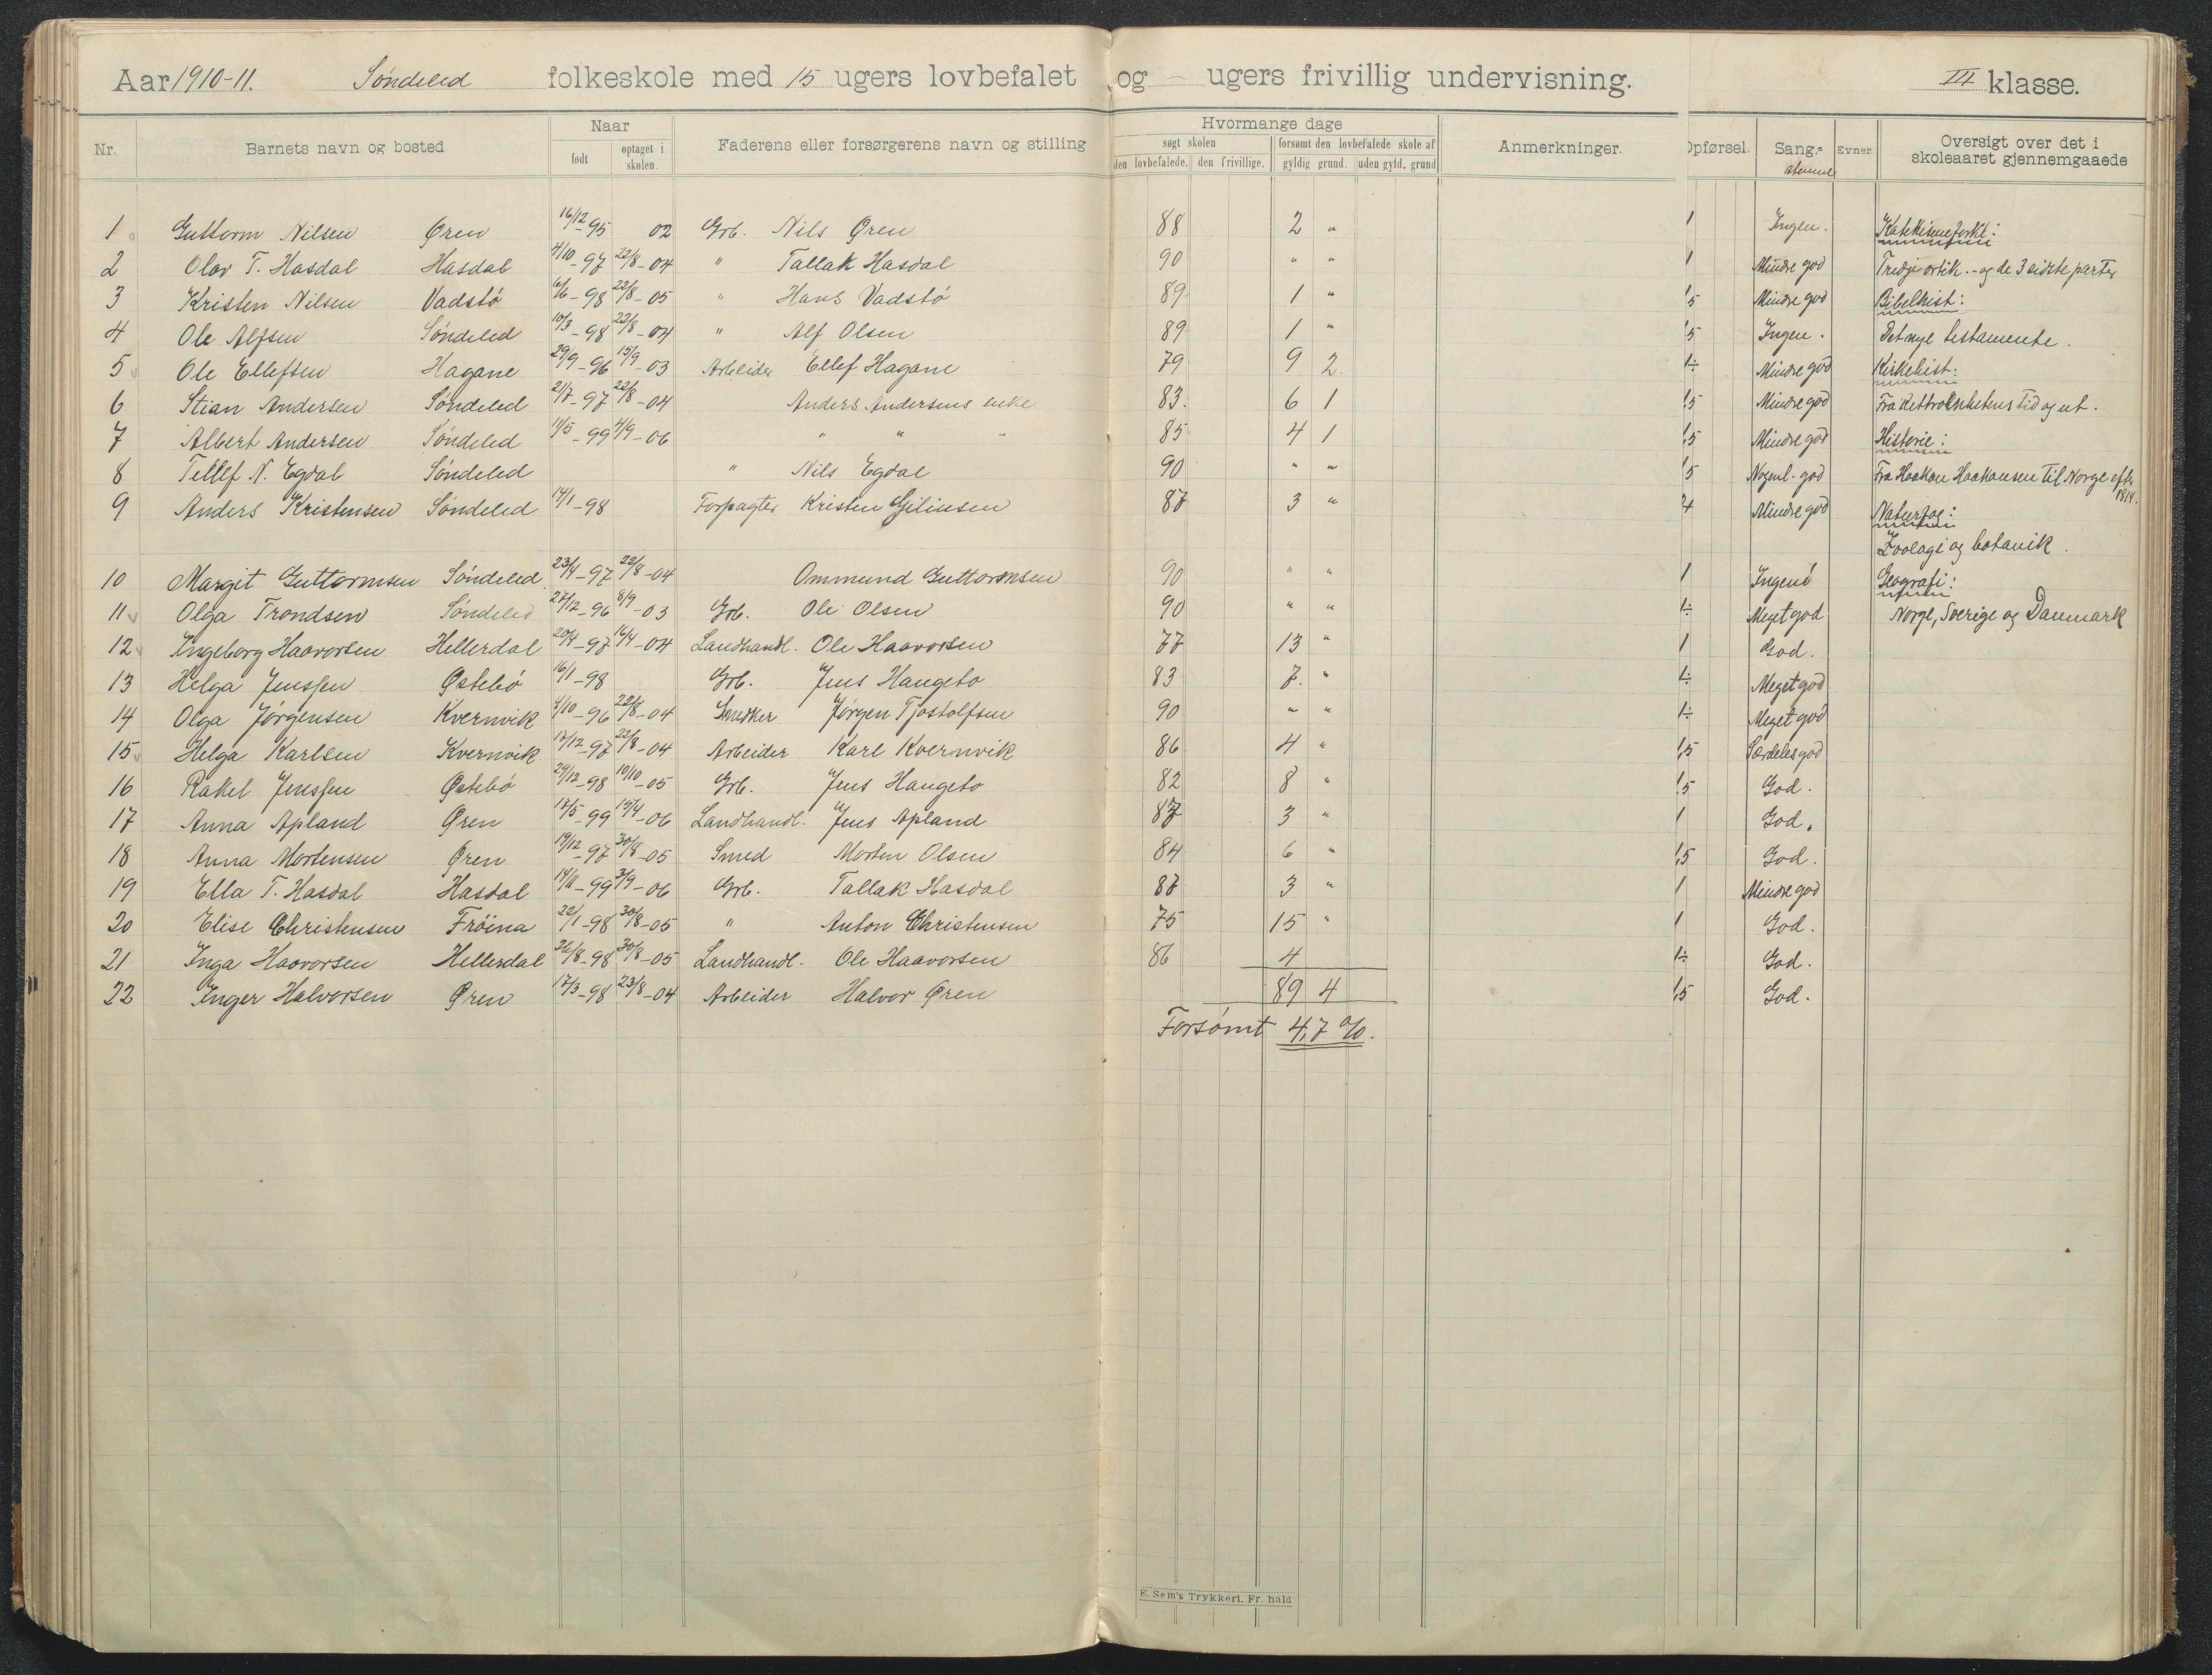 Aar 1910-11. Søndeled folkeskole med 15 ugers lovbefalet og - ugers frivillig undervisning. III klasse.
Nr. Barnets navn og bosted Naar født optaget i skolen. Faderens eller forsørgerens navn og stilling Hvormange dage søgt skolen den lovbefalede. den frivillige. forsømt den lovbefalede skole af gyldig grund. uden gyld. grund Anmerkninger. Opførsel. Sang- stemme Evner Oversigt over det i skoleaaret gjennemgaaede
1 Guttorm Nilsen Øren 16/12-95 02 Grb. Nils Øren 88 2 " 1 Ingen. Katekismeforkl:
2 Olav T. Hasdal Hasdal 4/10-97 22/8-04 " Tallak Hasdal 90 " " 1 Mindre god Tredje artik. - og de 3 sidste parter
3 Kristen Nilsen Vadstø 6/6-98 22/8-05 " Hans Vadstø 89 1 " 1,5 Mindre god Bibelhist:
4 Ole Alfsen Søndeled 10/3-98 22/8-04 " Alf Olsen 89 1 " 1,5 Ingen. Det nye testamente.
5 Ole Ellefsen Hagane 29/9-96 15/9-03 Arbeider Ellef Hagane 79 9 2 1÷ Mindre god Kirkehist:
6 Stian Andersen Søndeled 21/7-97 22/8-04 Anders Andersens enke 83. 6 1 1,5 Mindre god Fra rettroenhetens tid og ut.
7 Albert Andersen Søndeled 11/5-99 4/9-06 " " " 85 4 1 1,5 Mindre god Historie:
8 Tellef N. Egdal Søndeled " Nils Egdal 90 " " 1,5 Nogenl. god Fra Haakon Haakonsen til Norge efter 1814.
9 Anders Kristensen Søndeled 14/1-98 Forpagter Kristen 87 3 " 24 Mindre god Naturfag:
Zoologi og botanik.
10 Margit Guttormsen Søndeled 23/4-97 22/8-04 Ommund Guttormsen 90 " " 1 Ingen Geografi:
11 Olga Trondsen Søndeled 27/12-96 8/9-03 Grb. Ole Olsen 90 " " 1÷ Meget god Norge, Sverige og Danmark
12 Ingeborg Haavorsen Hellerdal 20/4-97 19/4-04 Landhandl. Ole Haavorsen 77 13 " 1 God.
13 Helga Jenssen Østebø 16/1-98 Grb. Jens Haugeto 83 7. " 1÷ Meget god
14 Olga Jørgensen Kvernvik 1/10-96 22/8-04 Snedker Jørgen Tjostolfsen 90 " " 1÷ Meget god
15 Helga Karlsen Kvernvik 17/12-97 22/8-04 Arbeider Karl Kvernvik 86 4 " 1,5 Særdeles god
16 Rakel Jenssen Østebø 29/12-98 10/10-05 Grb. Jens Haugeto 82 8 " 1,5 God.
17 Anna Apland Øren 17/5-99 19/4-06 Landhandl. Jens Apland 87 3 " 1 God.
18 Anna Mortensen Øren 19/12-97 30/8-05 Smed Morten Olsen 84 6 " 1,5 God.
19 Ella T. Hasdal Hasdal 14/11-99 3/9-06 Grb. Tallak Hasdal 87 3 " 1 Mindre god
20 Elise Christensen Frøina 22/1-98 30/8-05 " Anton Christensen 75 15 " 1 God.
21 Inga Haavorsen Hellerdal 26/8-98 30/8-05 Landhandl. Ole Haavorsen 86 4 1÷ God.
22 Inger Halvorsen Øren 17/3-98 23/8-04 Arbeider Halvor Øren 89 4 1,5 God.
Forsømt 4,7 %.
E. Sem's Trykkeri, Fr. hald